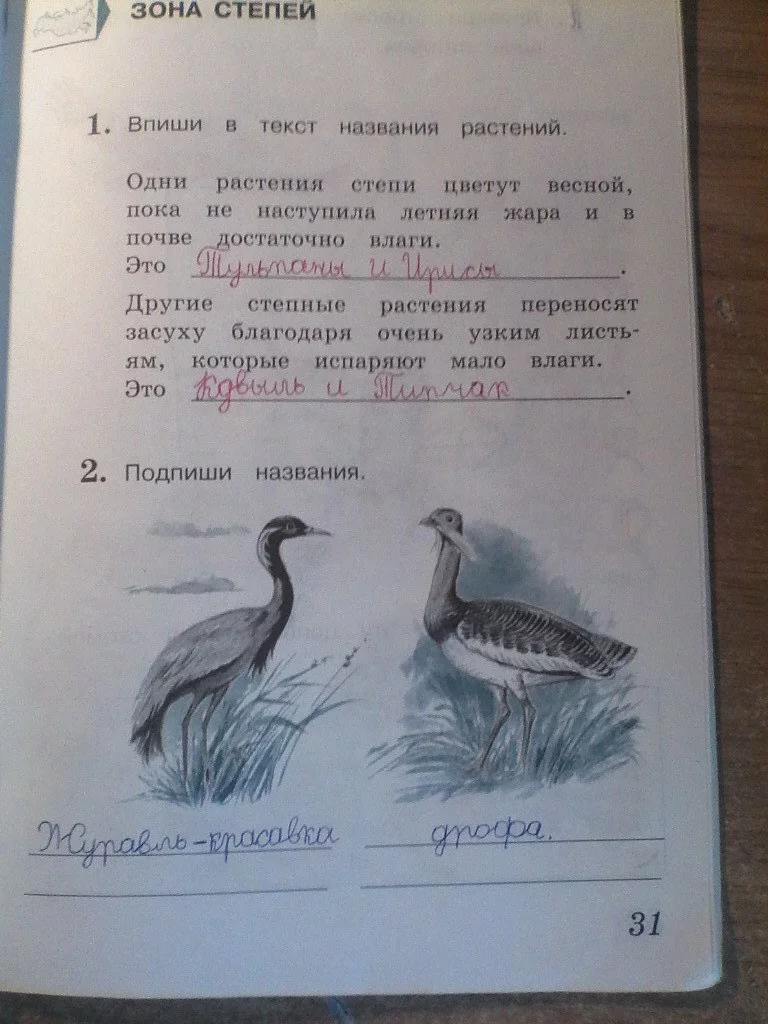 ЗОНА СТЕПЕЙ
1. Впиши в текст названия растений.
Одни растения степи цветут весной,
пока не наступила летняя жара и в
почве достаточно влаги.
Это Тульпаны и Ирисы.
Другие степные растения переносят
засуху благодаря очень узким листь-
ям, которые испаряют мало влаги.
Это Ковыль и Типчак.
2. Подпиши названия.
Журавль-красавка
дрофа.
31